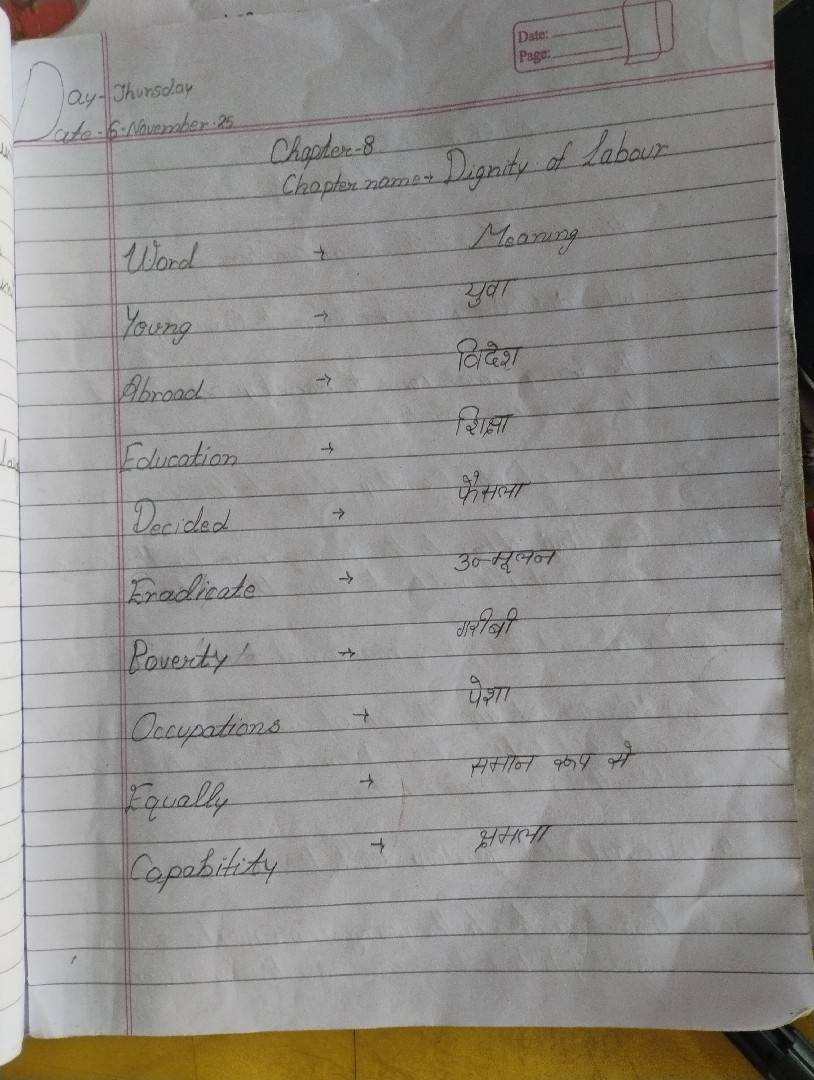 Date:
Page:
Day - Thursday
Date - 6 - November - 25
Chapter - 8
Chapter name → Dignity of Labour
Word → Meaning
Young → युवा
Abroad → विदेश
Education → शिक्षा
Decided → फैसला
Eradicate → उन्मूलन
Poverty → गरीबी
Occupations → पेशा
Equally → समान रूप से
Capability → क्षमता